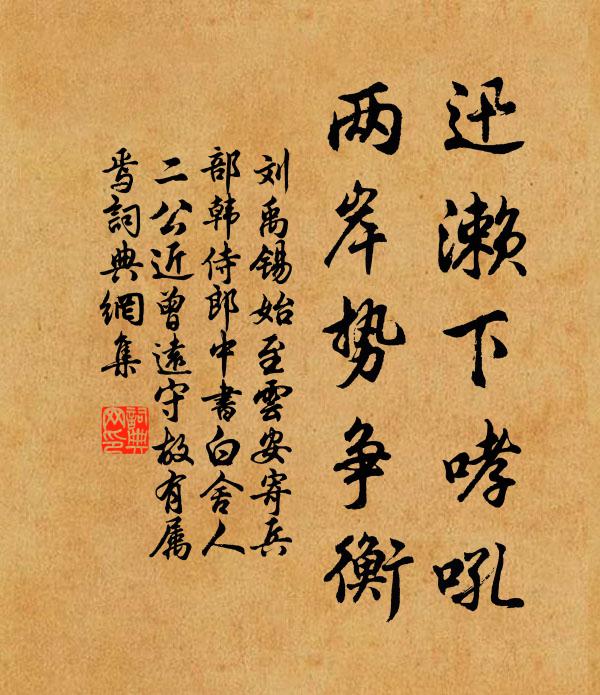 迅濑下哮吼
两岸势争衡
刘禹锡始至雲安寄兵
部韩侍郎中書白舍人
二公近曾遠守故有属
焉詞典網集
詞典
网印